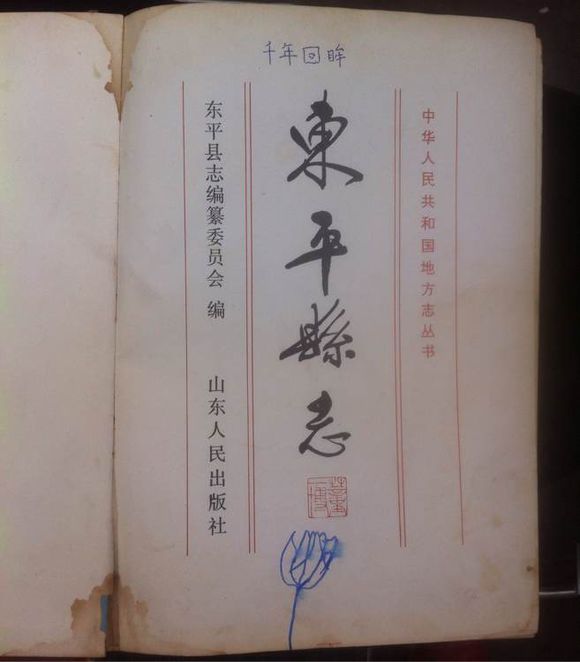 千年回眸
中华人民共和国地方志丛书
東平縣志
东平县志编纂委员会 编
山东人民出版社